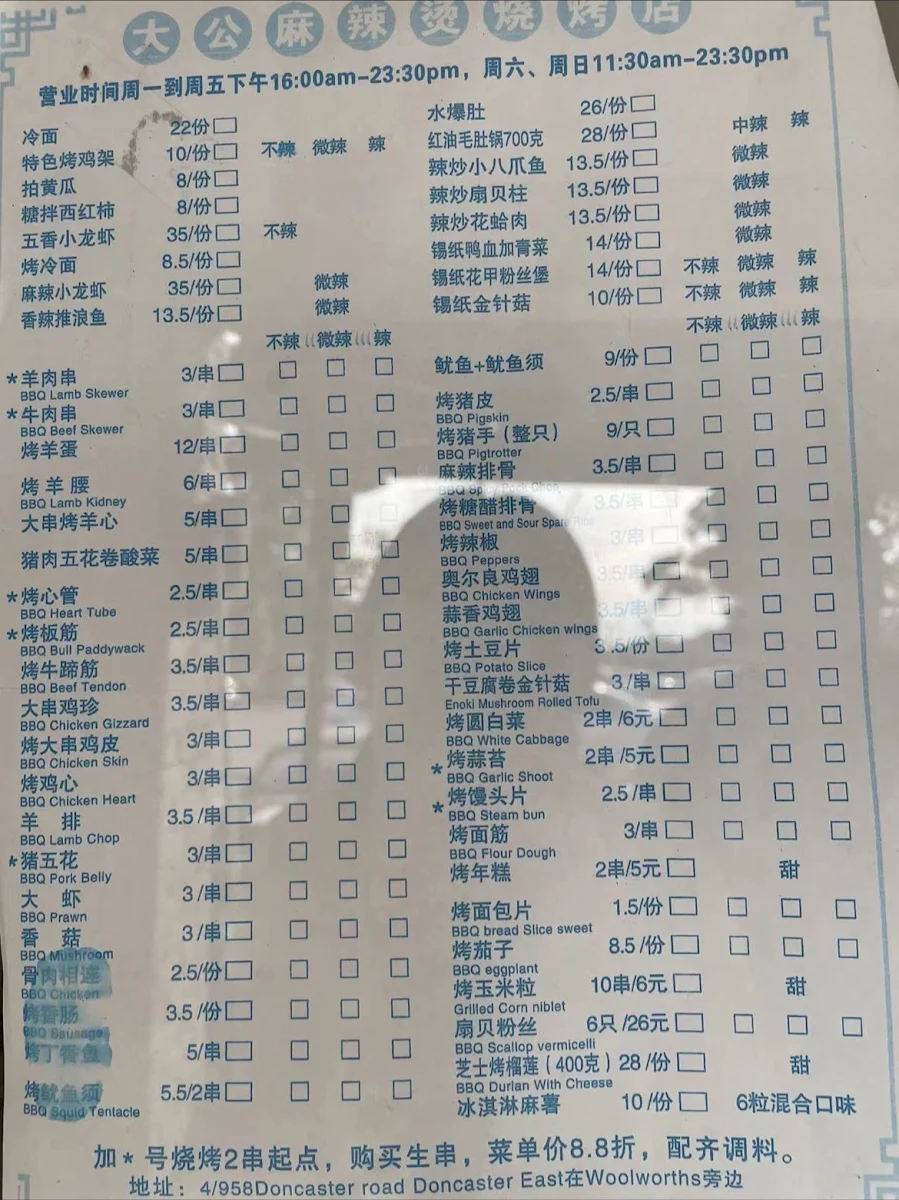 大公麻辣烫烧烤店
营业时间周一到周五下午16:00am-23:30pm，周六、周日11:30am-23:30pm
冷面 22份
特色烤鸡架 10/份 不辣 微辣 辣
拍黄瓜 8/份
糖拌西红柿 8/份
五香小龙虾 35/份 不辣
烤冷面 8.5/份
麻辣小龙虾 35/份 微辣
香辣推浪鱼 13.5/份 微辣
不辣 微辣 辣
*羊肉串 3/串
BBQ Lamb Skewer
*牛肉串 3/串
BBQ Beef Skewer
烤羊蛋 12/串
烤羊腰 6/串
BBQ Lamb Kidney
大串烤羊心 5/串
猪肉五花卷酸菜 5/串
*烤心管 2.5/串
BBQ Heart Tube
*烤板筋 2.5/串
BBQ Bull Paddywack
烤牛蹄筋 3.5/串
BBQ Beef Tendon
大串鸡珍 3.5/串
BBQ Chicken Gizzard
烤大串鸡皮 3/串
BBQ Chicken Skin
烤鸡心 3/串
BBQ Chicken Heart
羊排 3.5/串
BBQ Lamb Chop
*猪五花 3/串
BBQ Pork Belly
大虾 3/串
BBQ Prawn
香菇 3/串
BBQ Mushroom
骨肉相连 2.5/份
BBQ Chicken
烤香肠 3.5/份
BBQ Sausage
烤丁香鱼 5/串
烤鱿鱼须 5.5/2串
BBQ Squid Tentacle
水爆肚 26/份
红油毛肚锅700克 28/份 中辣 辣
辣炒小八爪鱼 13.5/份 微辣
辣炒扇贝柱 13.5/份 微辣
辣炒花蛤肉 13.5/份 微辣
锡纸鸭血加青菜 14/份 微辣
锡纸花甲粉丝煲 14/份 不辣 微辣 辣
锡纸金针菇 10/份 不辣 微辣 辣
不辣 微辣 辣
鱿鱼+鱿鱼须 9/份
烤猪皮 2.5/串
BBQ Pigskin
烤猪手（整只） 9/只
BBQ Pigtrotter
麻辣排骨 3.5/串
BBQ Spicy Pork Chop
烤糖醋排骨 3.5/串
BBQ Sweet and Sour Spare Ribs
烤辣椒 3/串
BBQ Peppers
奥尔良鸡翅 3.5/串
BBQ Chicken Wings
蒜香鸡翅 3.5/串
BBQ Garlic Chicken wings
烤土豆片 3.5/份
BBQ Potato Slice
干豆腐卷金针菇 3/串
Enoki Mushroom Rolled Tofu
烤圆白菜 2串/6元
BBQ White Cabbage
*烤蒜苔 2串/5元
BBQ Garlic Shoot
*烤馒头片 2.5/串
BBQ Steam bun
烤面筋 3/串
BBQ Flour Dough
烤年糕 2串/5元 甜
烤面包片 1.5/份
BBQ bread Slice sweet
烤茄子 8.5/份
BBQ eggplant
烤玉米粒 10串/6元 甜
Grilled Corn niblet
扇贝粉丝 6只/26元
BBQ Scallop vermicelli
芝士烤榴莲（400克） 28/份 甜
BBQ Durlan With Cheese
冰淇淋麻薯 10/份 6粒混合口味
加*号烧烤2串起点，购买生串，菜单价8.8折，配齐调料。
地址：4/958Doncaster road Doncaster East在Woolworths旁边